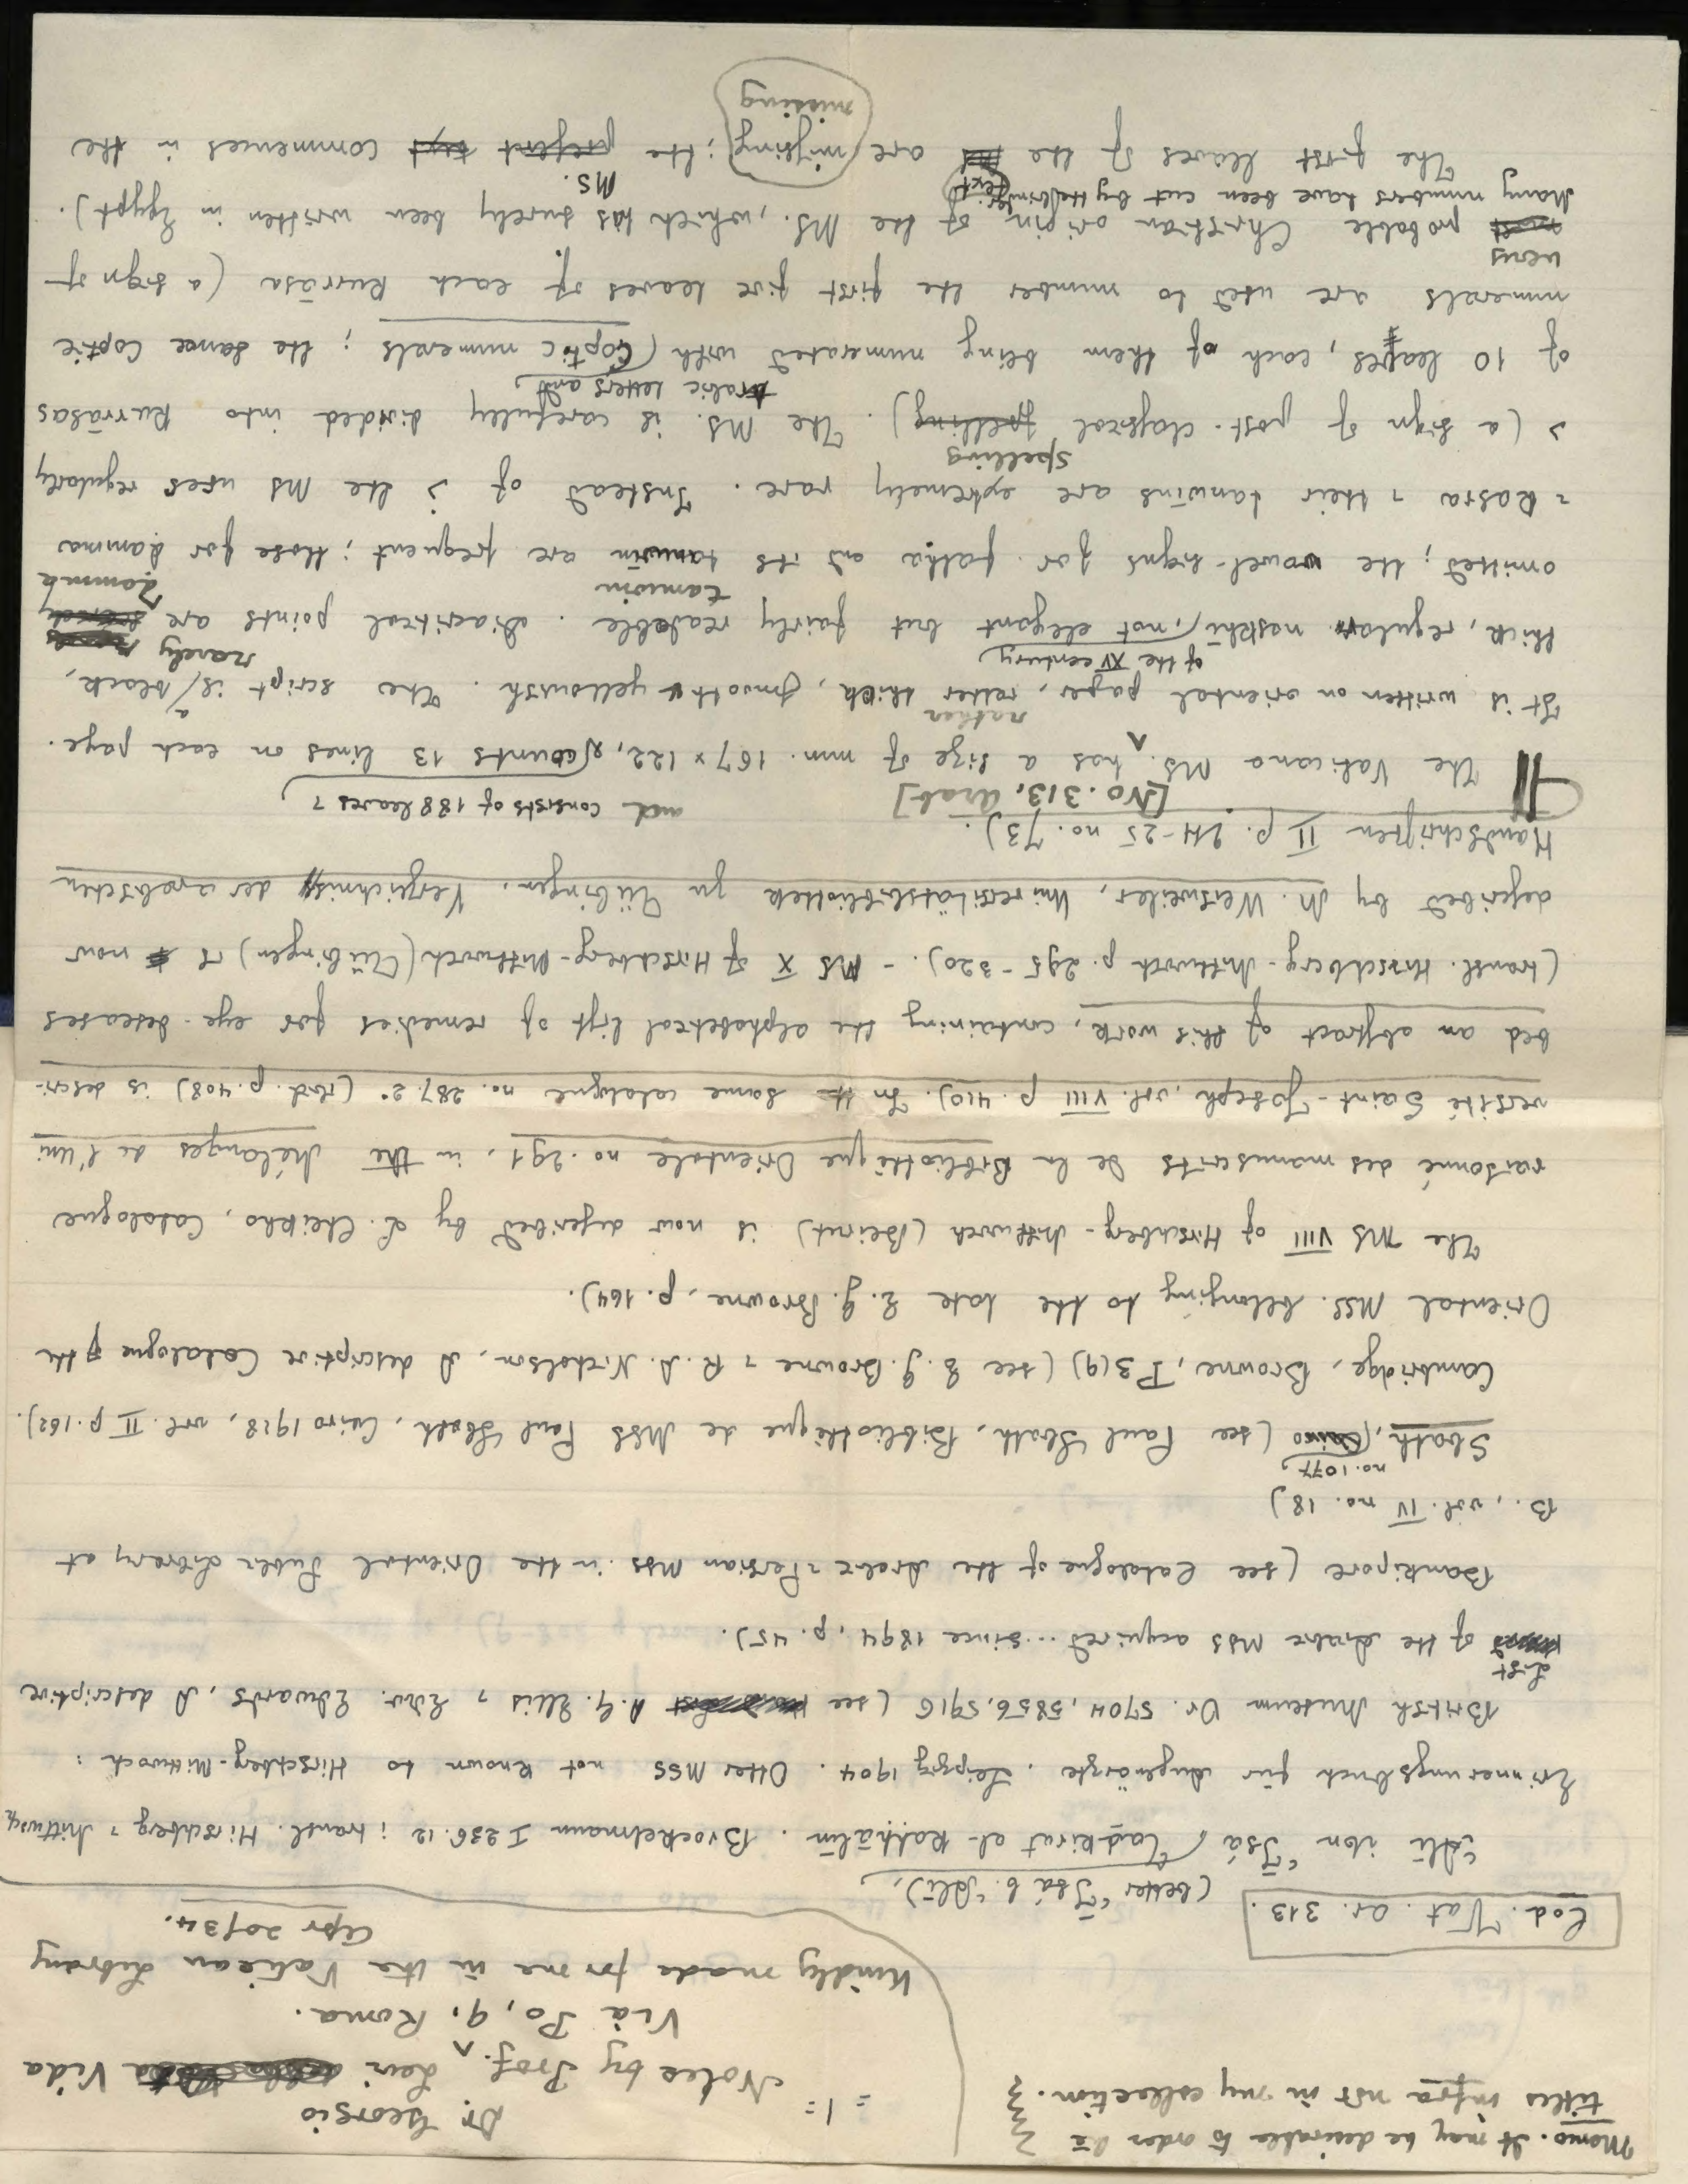 Memo. It may be desirable to order the
titles infra not in my collection.
= 1 =
Dr. Georgio
Notes by Prof. Levi Vida
Via Po, 9, Roma.
Kindly made for me in the Vatican Library
Apr 20/34.
Cod. Vat. ar. 313.
(better ʿĪsā b. ʿAlī),
ʿAlī ibn ʿĪsā Taḏkirat al-Kaḥḥālīn. Brockelmann I 236.12; transl. Hirschberg & Mittwoch,
Erinnerungsbuch für Augenärzte. Leipzig 1904. Other MSS not known to Hirschberg-Mittwoch:
British Museum Or. 5704, 5856, 5916 (see A. G. Ellis & Edw. Edwards, A descriptive
List
of the Arabic MSS acquired... since 1894, p. 45).
Bankipore (see Catalogue of the Arabic & Persian MSS in the Oriental Public Library at
B., vol. IV no. 18)
no. 1077,
Sbath, Cairo (see Paul Sbath, Bibliothèque de MSS Paul Sbath, Cairo 1928, vol. II p. 162).
Cambridge, Browne, P 3(9) (see E. G. Browne & R. A. Nicholson, A descriptive Catalogue of the
Oriental MSS. belonging to the late E. G. Browne, p. 164).
The MS VIII of Hirschberg-Mittwoch (Beirut) is now described by L. Cheikho, Catalogue
raisonné des manuscrits de la Bibliothèque Orientale no. 291, in the Mélanges de l'Uni
versité Saint-Joseph, vol. VIII p. 410). In the same catalogue no. 287.2° (ibid. p. 408) is descri-
bed an abstract of this work, containing the alphabetical list of remedies for eye-deseases
(transl. Hirschberg-Mittwoch p. 295-320). - MS X of Hirschberg-Mittwoch (Tübingen) is now
described by M. Weisweiler, Universitätsbibliothek zu Tübingen. Verzeichniss der arabischen
Handschriften II p. 24-25 no. 73).
[No. 313, Arab]
and consists of 188 leaves &
The Vaticana MS. has a size of mm. 167 x 122, counts 13 lines on each page.
rather
It is written on oriental paper, rather thick, smooth & yellowish. The script is a black,
of the XV century,
rarely
thick, regular naskhī, not elegant but fairly readable. Diacritical points are
tanwīn
Ḍamma
omitted; the vowel-signs for fatḥa and its tanwīn are frequent; those for ḍamma
& kasra & their tanwīns are extremely rare. Instead of ذ the MS uses regularly
spelling
د (a sign of post-classical spelling). The MS. is carefully divided into Kurrāsas
Arabic letters and
of 10 leaves, each of them being numerated with Coptic numerals; the same Coptic
numerals are used to number the first five leaves of each Kurrāsa (a sign of
very
probable Christian origin of the MS., which has surely been written in Egypt).
Many numbers have been cut by the binder
text
MS.
The first leaves of the are missing; the present text commences in the
missing